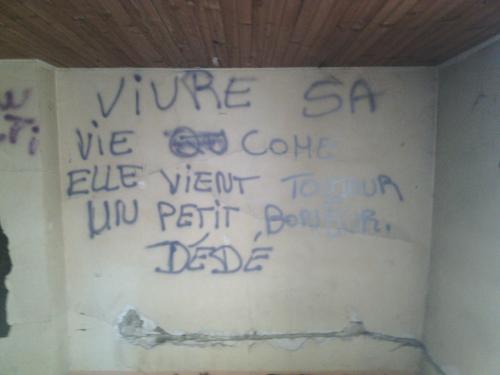 VIVRE SA
VIE COME
ELLE VIENT TOUJOUR
UN PETIT BONEUR.
DÉDÉ